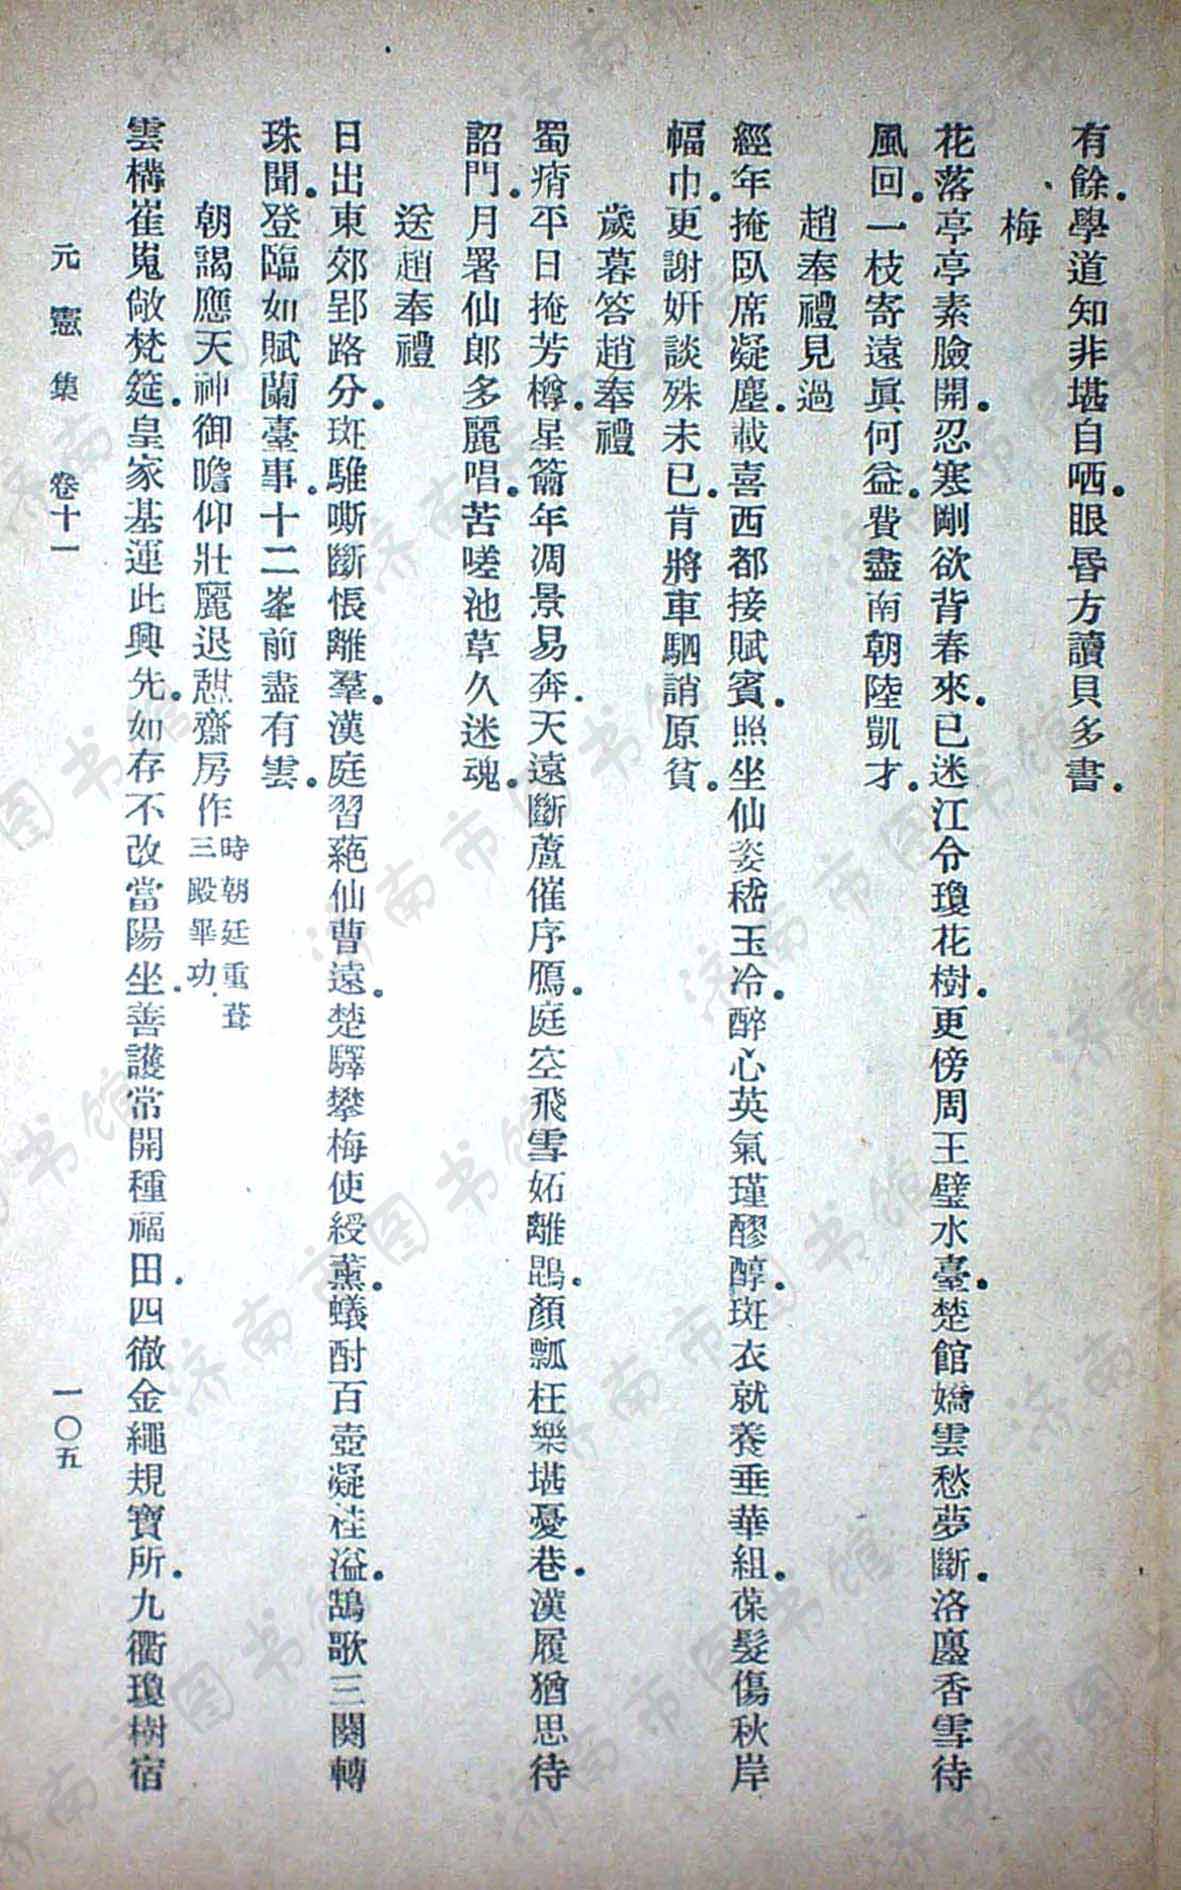 有餘。學道知非堪自哂。眼昏方讀貝多書。
梅
花落亭亭素臉開。忍寒剛欲背春來。已迷江令瓊花樹。更傍周王璧水臺。楚館嬌雲愁夢斷。洛廛香雪待
風回。一枝寄遠眞何益。費盡南朝陸凱才。
趙奉禮見過
經年掩臥席凝塵。載喜西都接賦賓。照坐仙姿嵇玉冷。醉心英氣瑾醪醇。斑衣就養垂華組。葆髮傷秋岸
幅巾。更謝妍談殊未已。肯將車駟誚原貧。
歲暮答趙奉禮
蜀痟平日掩芳樽。星籥年凋景易奔。天遠斷蘆催序鴈。庭空飛雪妬離鵾。顏瓢枉樂堪憂巷。漢履猶思待
詔門。月署仙郎多麗唱。苦嗟池草久迷魂。
送趙奉禮
日出東郊郢路分。斑騅嘶斷悵離羣。漢庭習蕝仙曹遠。楚驛攀梅使綬薰。蟻酎百壺凝桂溢。鵠歌三闋轉
珠聞。登臨如賦蘭臺事。十二峯前盡有雲。
朝謁應天神御瞻仰壯麗退憇齋房作時朝廷重葺三殿畢功
雲構崔嵬敞梵筵。皇家基運此興先。如存不改當陽坐。善護常開種福田。四徹金繩規寶所。九衢瓊樹宿
元憲集 卷十一 一〇五